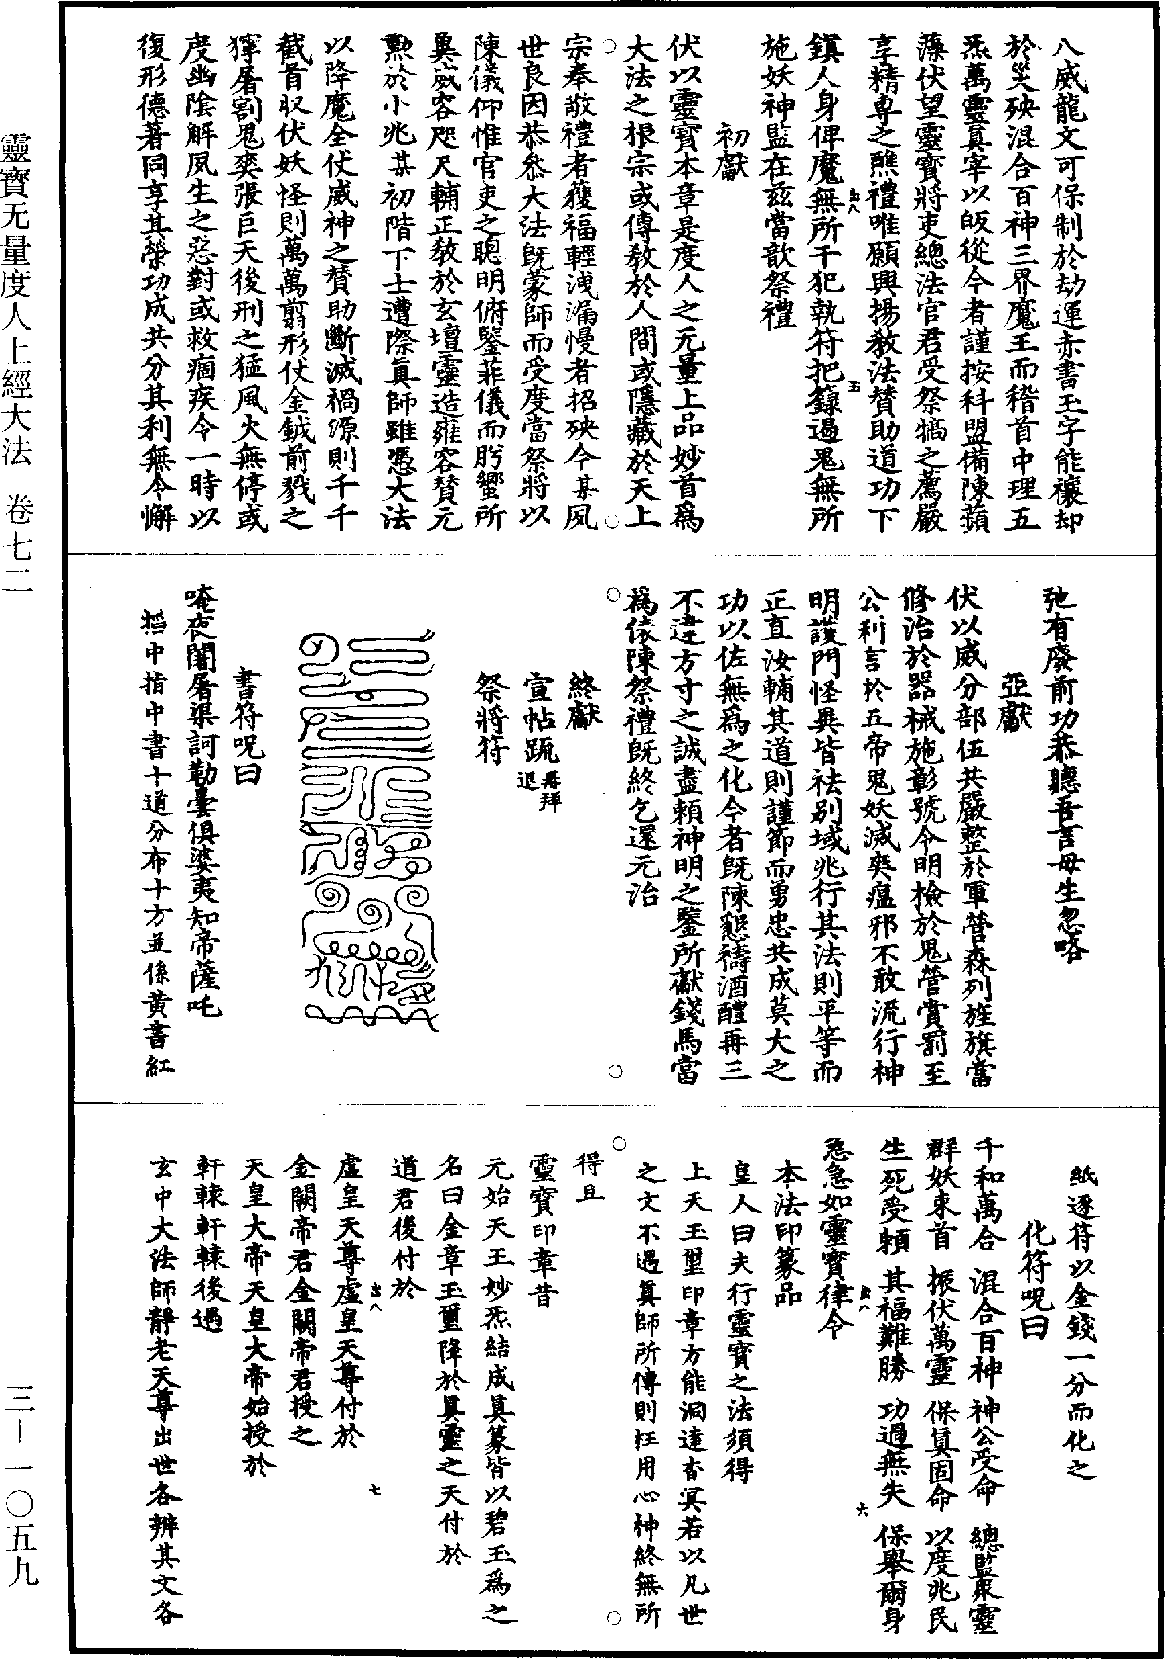 八威龍文可保制於劫運赤書玉字能禳却
於災殃混合百神三界魔王而稽首中理五
炁萬靈真宰以皈從今者謹按科盟備陳蘋
藻伏望靈寶將吏總法官君受祭犒之薦嚴
享精専之醮禮唯願興揚教法賛助道功下
鎮人身俾魔無所干犯執符把籙過鬼無所
施妖神監在兹當歆祭禮
初獻
伏以靈寶本章是度人之无量上品妙首爲
大法之根宗或傳教於人間或隱藏於天上
宗奉敬禮者獲福輕洩漏慢者招殃今某夙
世良因恭叅大法旣蒙師而受度當祭將以
陳儀仰惟官吏之聰明俯鑒菲儀而肸蠁所
兾威容咫尺輔正教於玄壇靈造雍容賛元
勲於小兆某初階下士遭際眞師雖憑大法
以降魔全仗威神之賛助斷滅禍源則千千
截首収伏妖怪則萬萬翦形仗金鉞前戮之
獰屠割鬼爽張巨天後刑之猛風火無停或
度幽陰解夙生之惡對或救痼疾令一時以
復形德著同享其榮功成共分其利無令懈
弛有廢前功恭聽吾言毋生忽咯
亞獻
伏以威分部伍共嚴整於軍營森列旌旗當
修治於器械施彰號令明檢於鬼營賞罰至
公利言於五帝鬼妖滅爽瘟邪不敢流行神
明護門怪異皆袪别域兆行其法則平等而
正直汝輔其道則謹節而勇忠共成莫大之
功以佐無爲之化今者旣陳懇禱酒醴再三
不違方寸之誠盡賴神明之鑒所獻錢馬當
爲依陳祭禮旣終乞還元治
終獻
宣帖䟽再拜退
祭將符
書符呪曰
唵夜闍屠渠訶勒曇俱婆夷知帝薩吒
搯中指中書十道分布十方並係黄書紅
紙逐符以金錢一分而化之
化符呪曰
千和萬合 混合百神 神公受命 總監衆靈
群妖束首 振伏萬靈 保眞固命 以度兆民
生死受賴 其福難勝 功過無失 保舉爾身
急急如靈寶律令
本法印篆品
皇人曰夫行靈寶之法須得
上天玉璽印章方能洞達杳冥若以凡世
之文不遇眞師所傳則枉用心神終無所
得且
靈寶印章昔
元始天王妙炁結成眞篆皆以碧玉爲之
名曰金章玉璽降於眞靈之天付於
道君後付於
虛皇天尊虛皇天尊付於
金闕帝君金闕帝君授之
天皇大帝天皇大帝始授於
軒轅軒轅後遇
玄中大法師靜老天尊出世各辨其文各
靈寶无量度人上經大法 卷七二
三－一〇五九